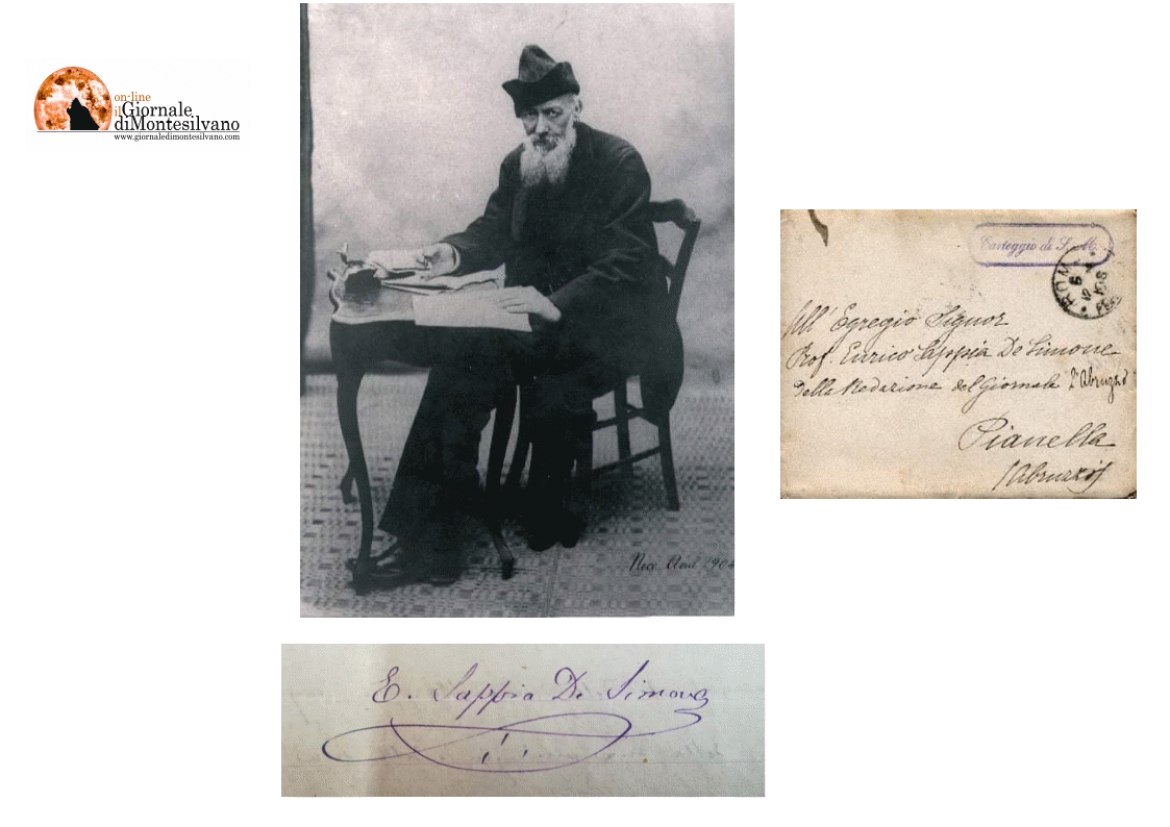 on-line
il Giornale
diMontesilvano
www.giornaledimontesilvano.com
Carteggio di S. M.
ROM
All' Egregio Signor
Prof. Enrico Sappia De Simone
Della Redazione del Giornale "L'Abruzzo"
Pianella
(Abruzzi)
Nice Avril 190
E. Sappia De Simone